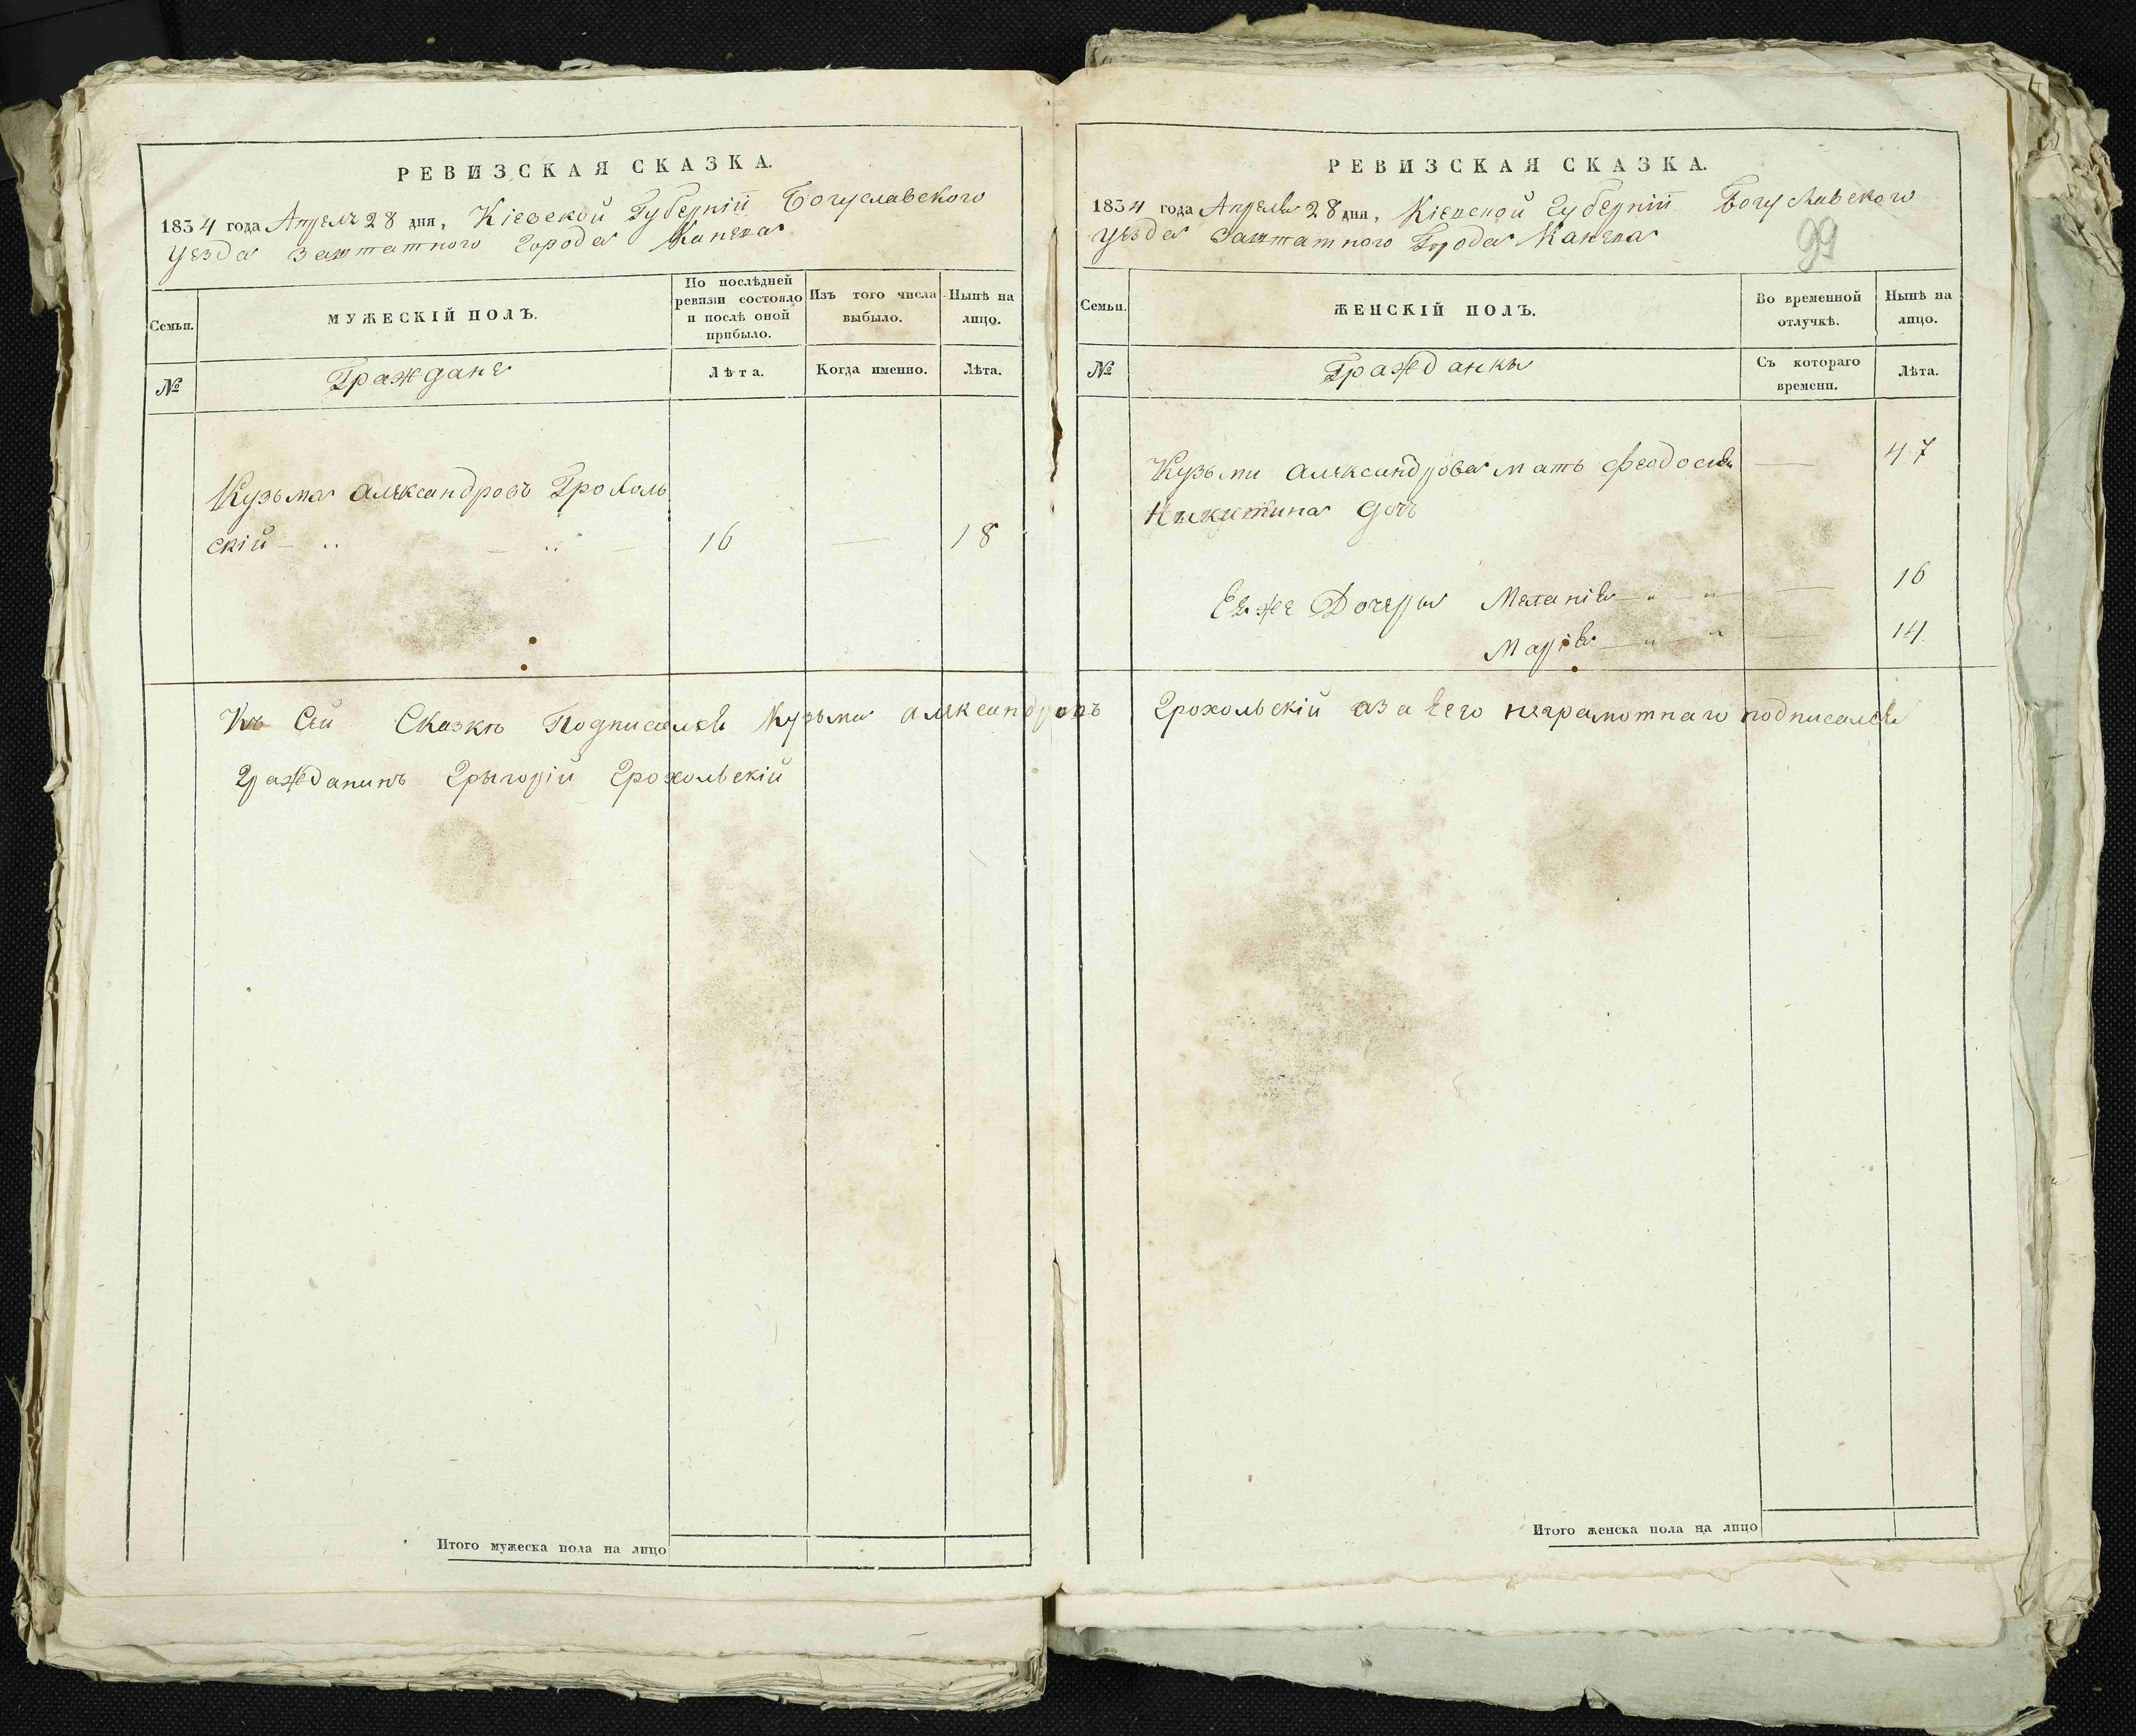 РЕВИЗСКАЯ СКАЗКА.
1834 года Апреля 28 дня, Кіевской Губерніи Богуславского
уезда заштатного города Канева
Семьи.
МУЖЕСКІЙ ПОЛЪ.
По послѣдней ревизіи состояло и послѣ оной прибыло.
Изъ того числа выбыло.
Нынѣ на лицо.
№
Граждане
Лѣта.
Когда именно.
Лѣта.
Кузьма Александровъ Грохоль
скій 16 — 18
Къ Сей Сказкѣ Подписался Кузьма Александровъ
Гражданинъ Грыгорій Грохольскій
Итого мужеска пола на лицо
РЕВИЗСКАЯ СКАЗКА.
1834 года Апреля 28 дня, Кіевской Губерніи Богуславского
уезда Заштатного Города Канева
99
Семьи.
ЖЕНСКІЙ ПОЛЪ.
Во временной отлучкѣ.
Нынѣ на лицо.
№
Гражданки
Съ котораго времени.
Лѣта.
Кузьми Александрова мать Феодосия — 47
Никитина доч
Ея же Дочеры Меланія — 16
Марія — 14
Грохольскій а за Его неграмотнаго подписался
Итого женска пола на лицо